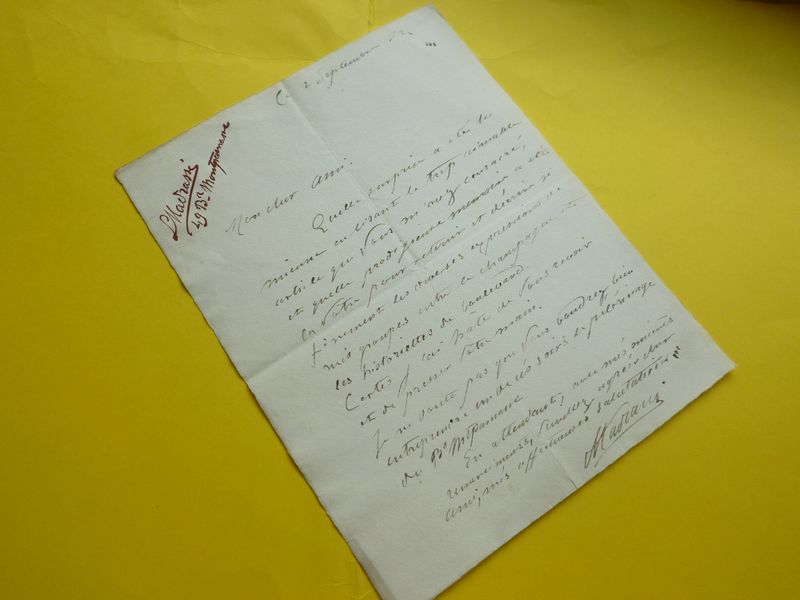 Ce 2 Septembre
L Madrassi
29 Bd Montparnasse
Mon cher ami.
Quelle surprise a été la
mienne en lisant le trop aimable
article que Vous m'avez consacré,
et quelle prodigieuse mémoire a été
la Vôtre pour retenir et décrire si
finement les diverses expressions de
mes groupes entre le champagne et
les historiettes de boulevard.
Certes j'ai hâte de Vous revoir
et de presser Votre main.
Je ne doute pas que Vous voudrez bien
entreprendre un de ces soirs le pélérinage
du Bd Mtparnasse.
En attendant, avec mes mêmes
remerciments, Veuillez agréer cher
ami, mes affectueuses salutations
Madrassi